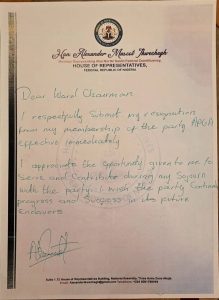 Hon. Alexander Mascot Ikwechegh
HOUSE OF REPRESENTATIVES,
FEDERAL REPUBLIC OF NIGERIA
Dear Ward Chairman
I respectfully submit my resignation
from my membership of the party APGA
effective immediately
I appreciate the opportunity given to me to
serve and contribute during my Sojourn
with the party. I wish the party Continued
progress and Success in its future
Endeavors